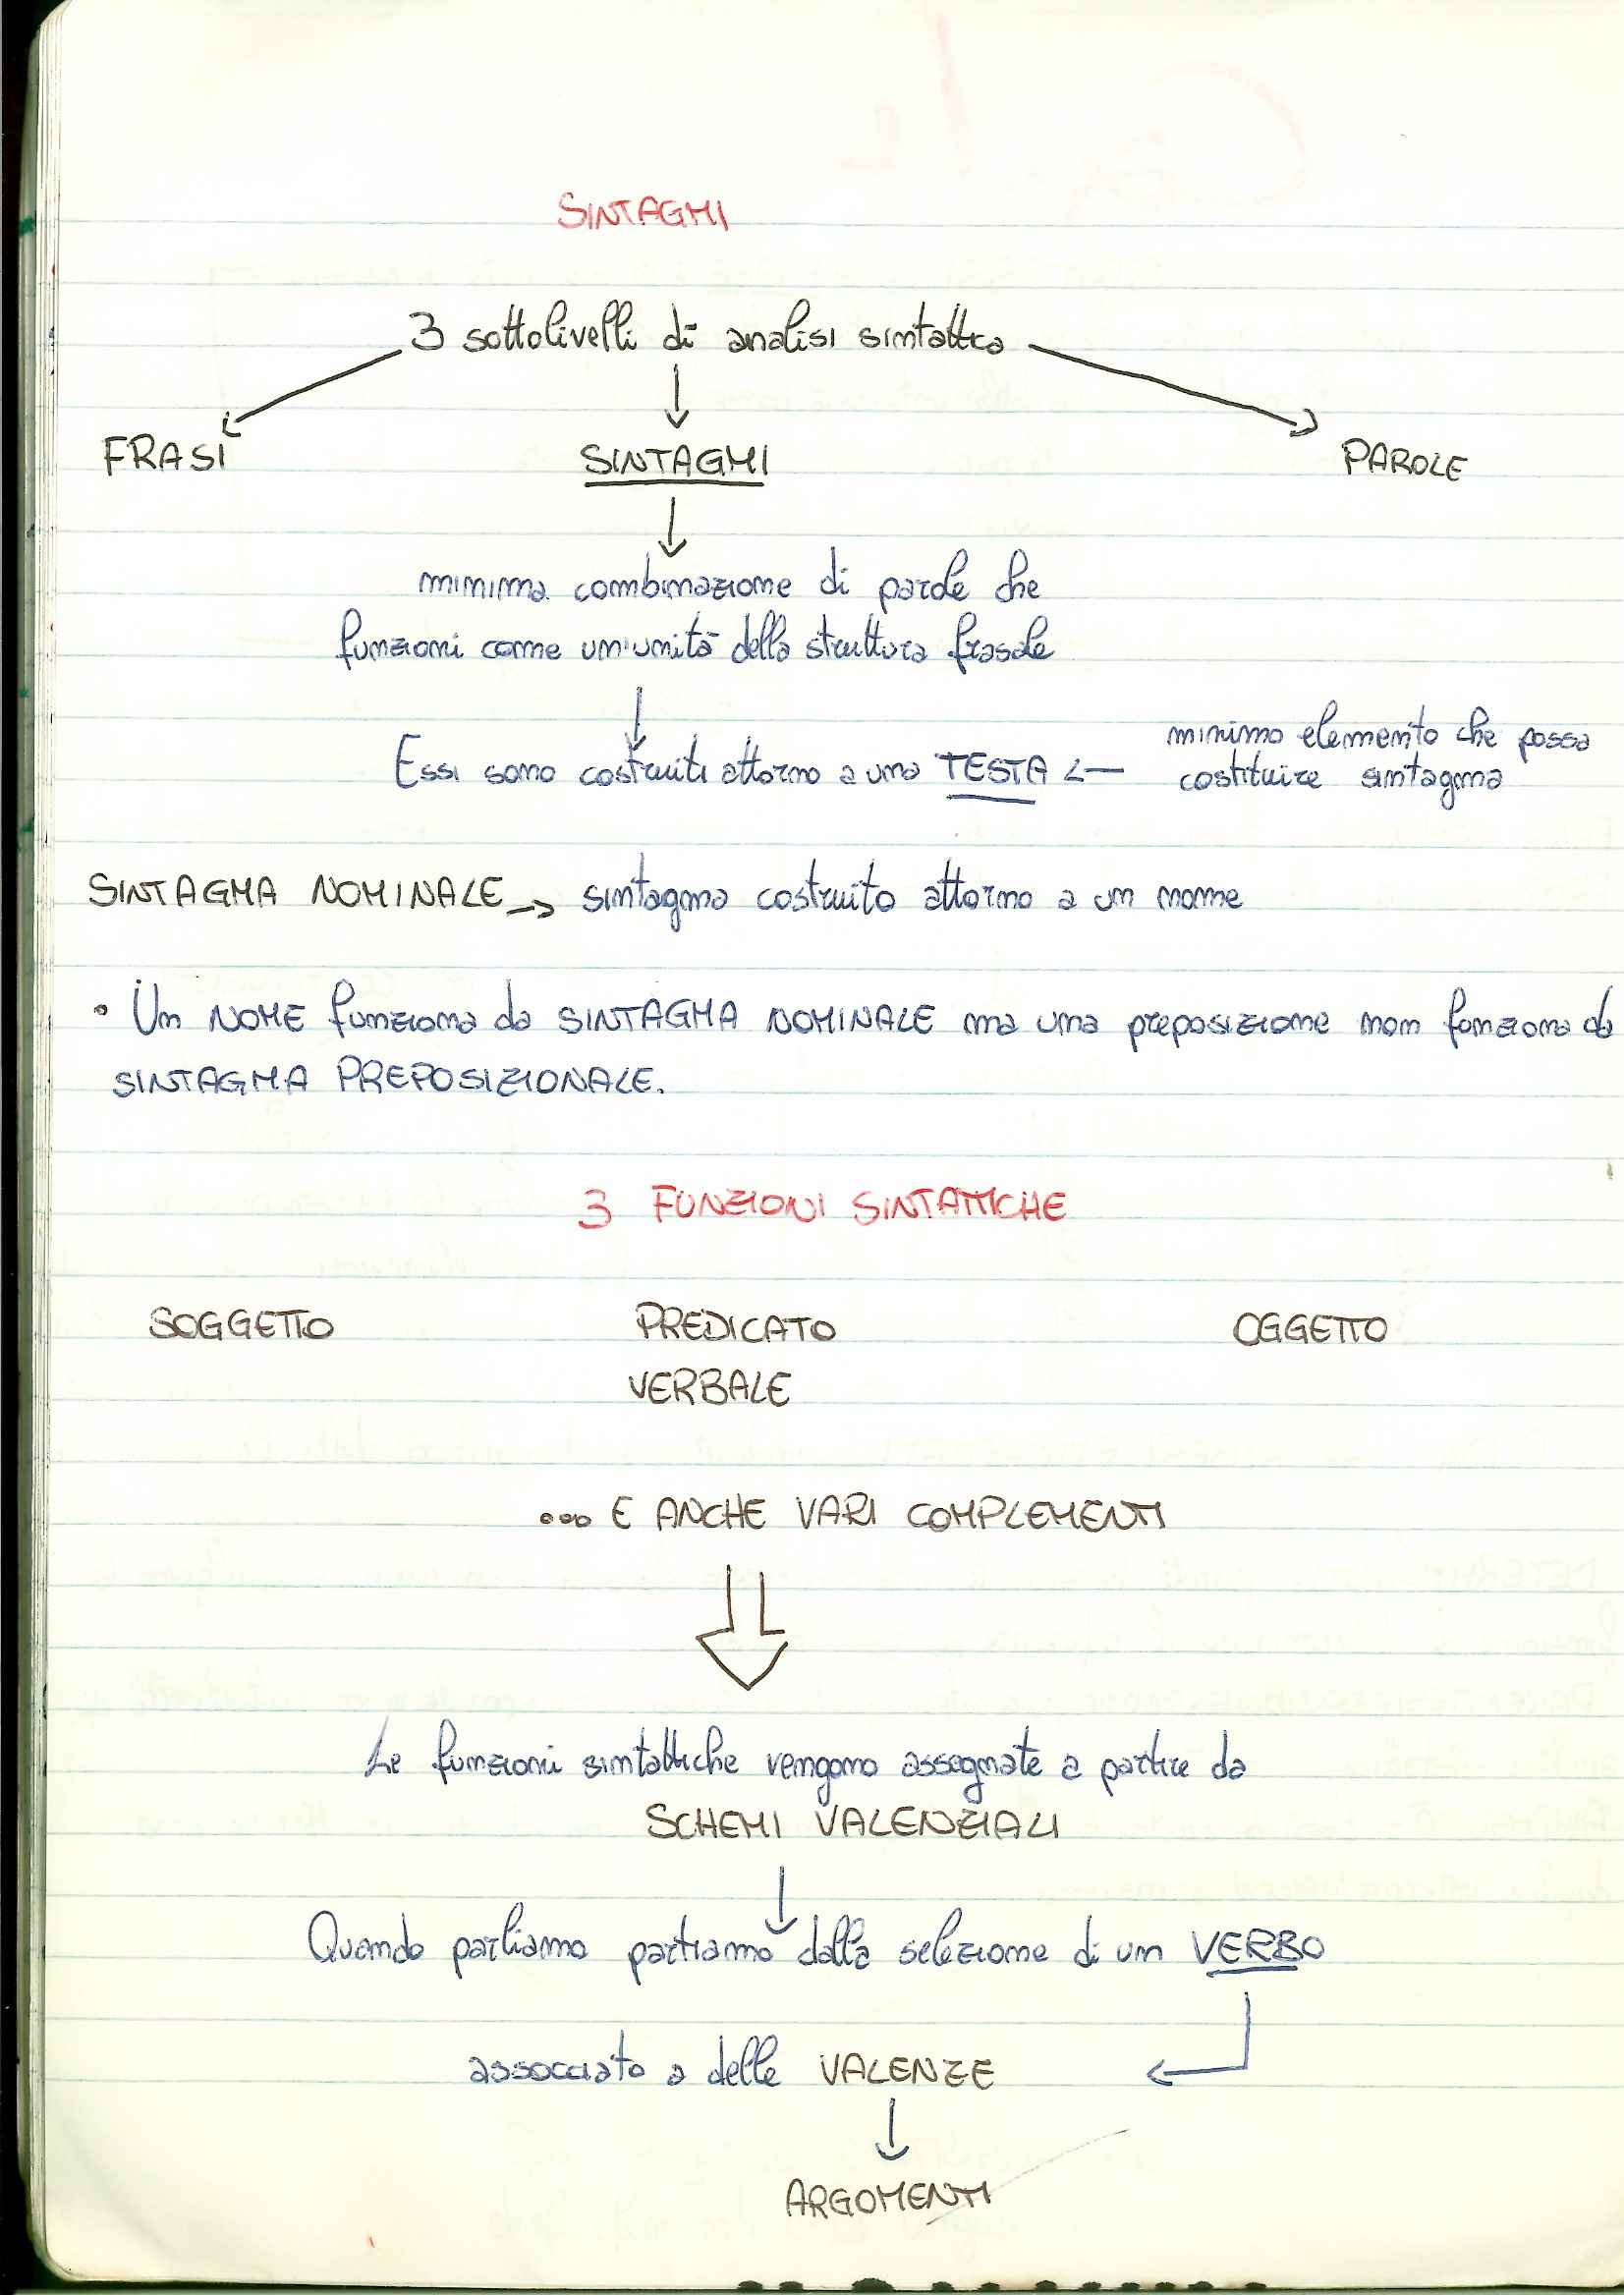 SINTAGMI
3 sottolivelli di analisi sintattica
FRASI SINTAGMI PAROLE
minima combinazione di parole che
funzioni come un'unità della struttura frasale
minimo elemento che possa
Essi sono costruiti attorno a una TESTA <— costituire sintagma
SINTAGMA NOMINALE -> sintagma costruito attorno a un nome
• Un NOME funziona da SINTAGMA NOMINALE ma una preposizione non funziona da
SINTAGMA PREPOSIZIONALE.
3 FUNZIONI SINTATTICHE
SOGGETTO PREDICATO OGGETTO
VERBALE
... E ANCHE VARI COMPLEMENTI
Le funzioni sintattiche vengono assegnate a partire da
SCHEMI VALENZIALI
Quando parliamo partiamo dalla selezione di un VERBO
associato a delle VALENZE
ARGOMENTI